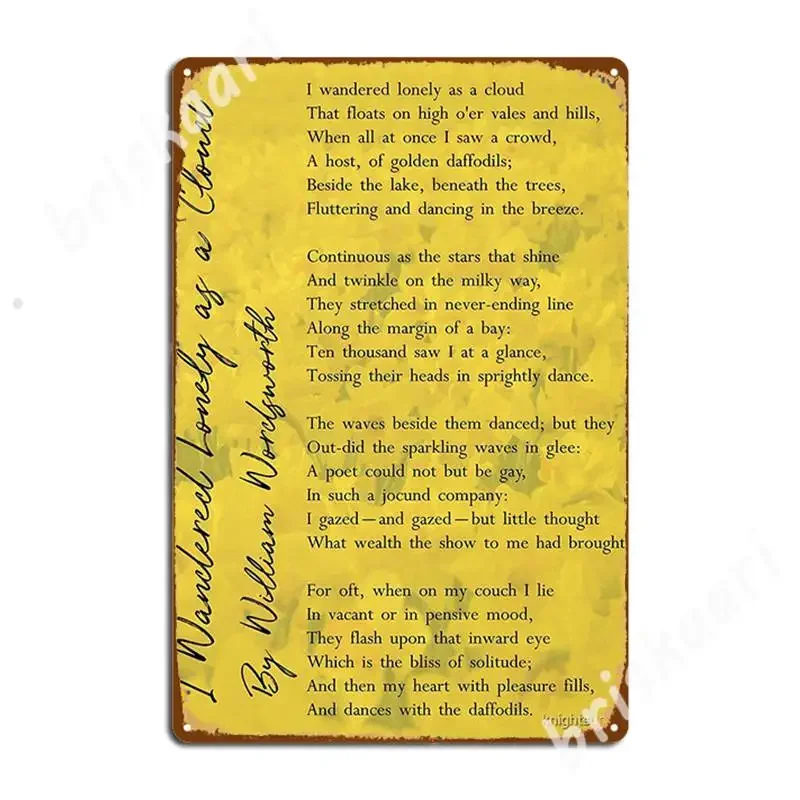 I Wandered Lonely as a Cloud
By William Wordsworth
I wandered lonely as a cloud
That floats on high o'er vales and hills,
When all at once I saw a crowd,
A host, of golden daffodils;
Beside the lake, beneath the trees,
Fluttering and dancing in the breeze.
Continuous as the stars that shine
And twinkle on the milky way,
They stretched in never-ending line
Along the margin of a bay:
Ten thousand saw I at a glance,
Tossing their heads in sprightly dance.
The waves beside them danced; but they
Out-did the sparkling waves in glee:
A poet could not but be gay,
In such a jocund company:
I gazed—and gazed—but little thought
What wealth the show to me had brought
For oft, when on my couch I lie
In vacant or in pensive mood,
They flash upon that inward eye
Which is the bliss of solitude;
And then my heart with pleasure fills,
And dances with the daffodils.
briskuari
briskuari
briskuari